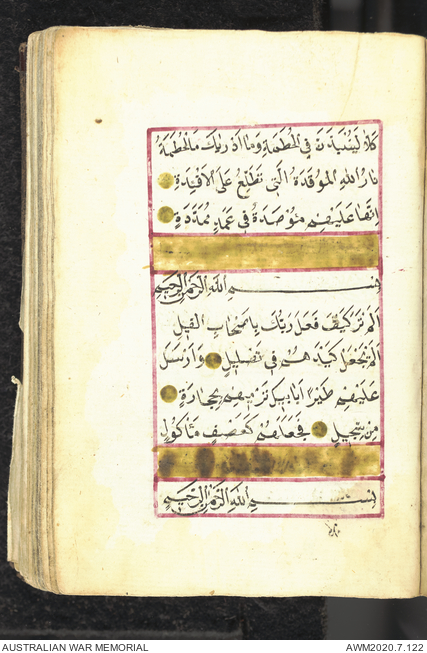 كلا لينبذن في الحطمة وما ادريك ما الحطمة
نار الله الموقدة التي تطلع على الافئدة
انها عليهم مؤصدة في عمد ممددة
بسم الله الرحمن الرحيم
الم تر كيف فعل ربك باصحاب الفيل
الم يجعل كيدهم في تضليل وارسل
عليهم طيرا ابابيل ترميهم بحجارة
من سجيل فجعلهم كعصف مأكول
بسم الله الرحمن الرحيم
AUSTRALIAN WAR MEMORIAL
AWM2020.7.122